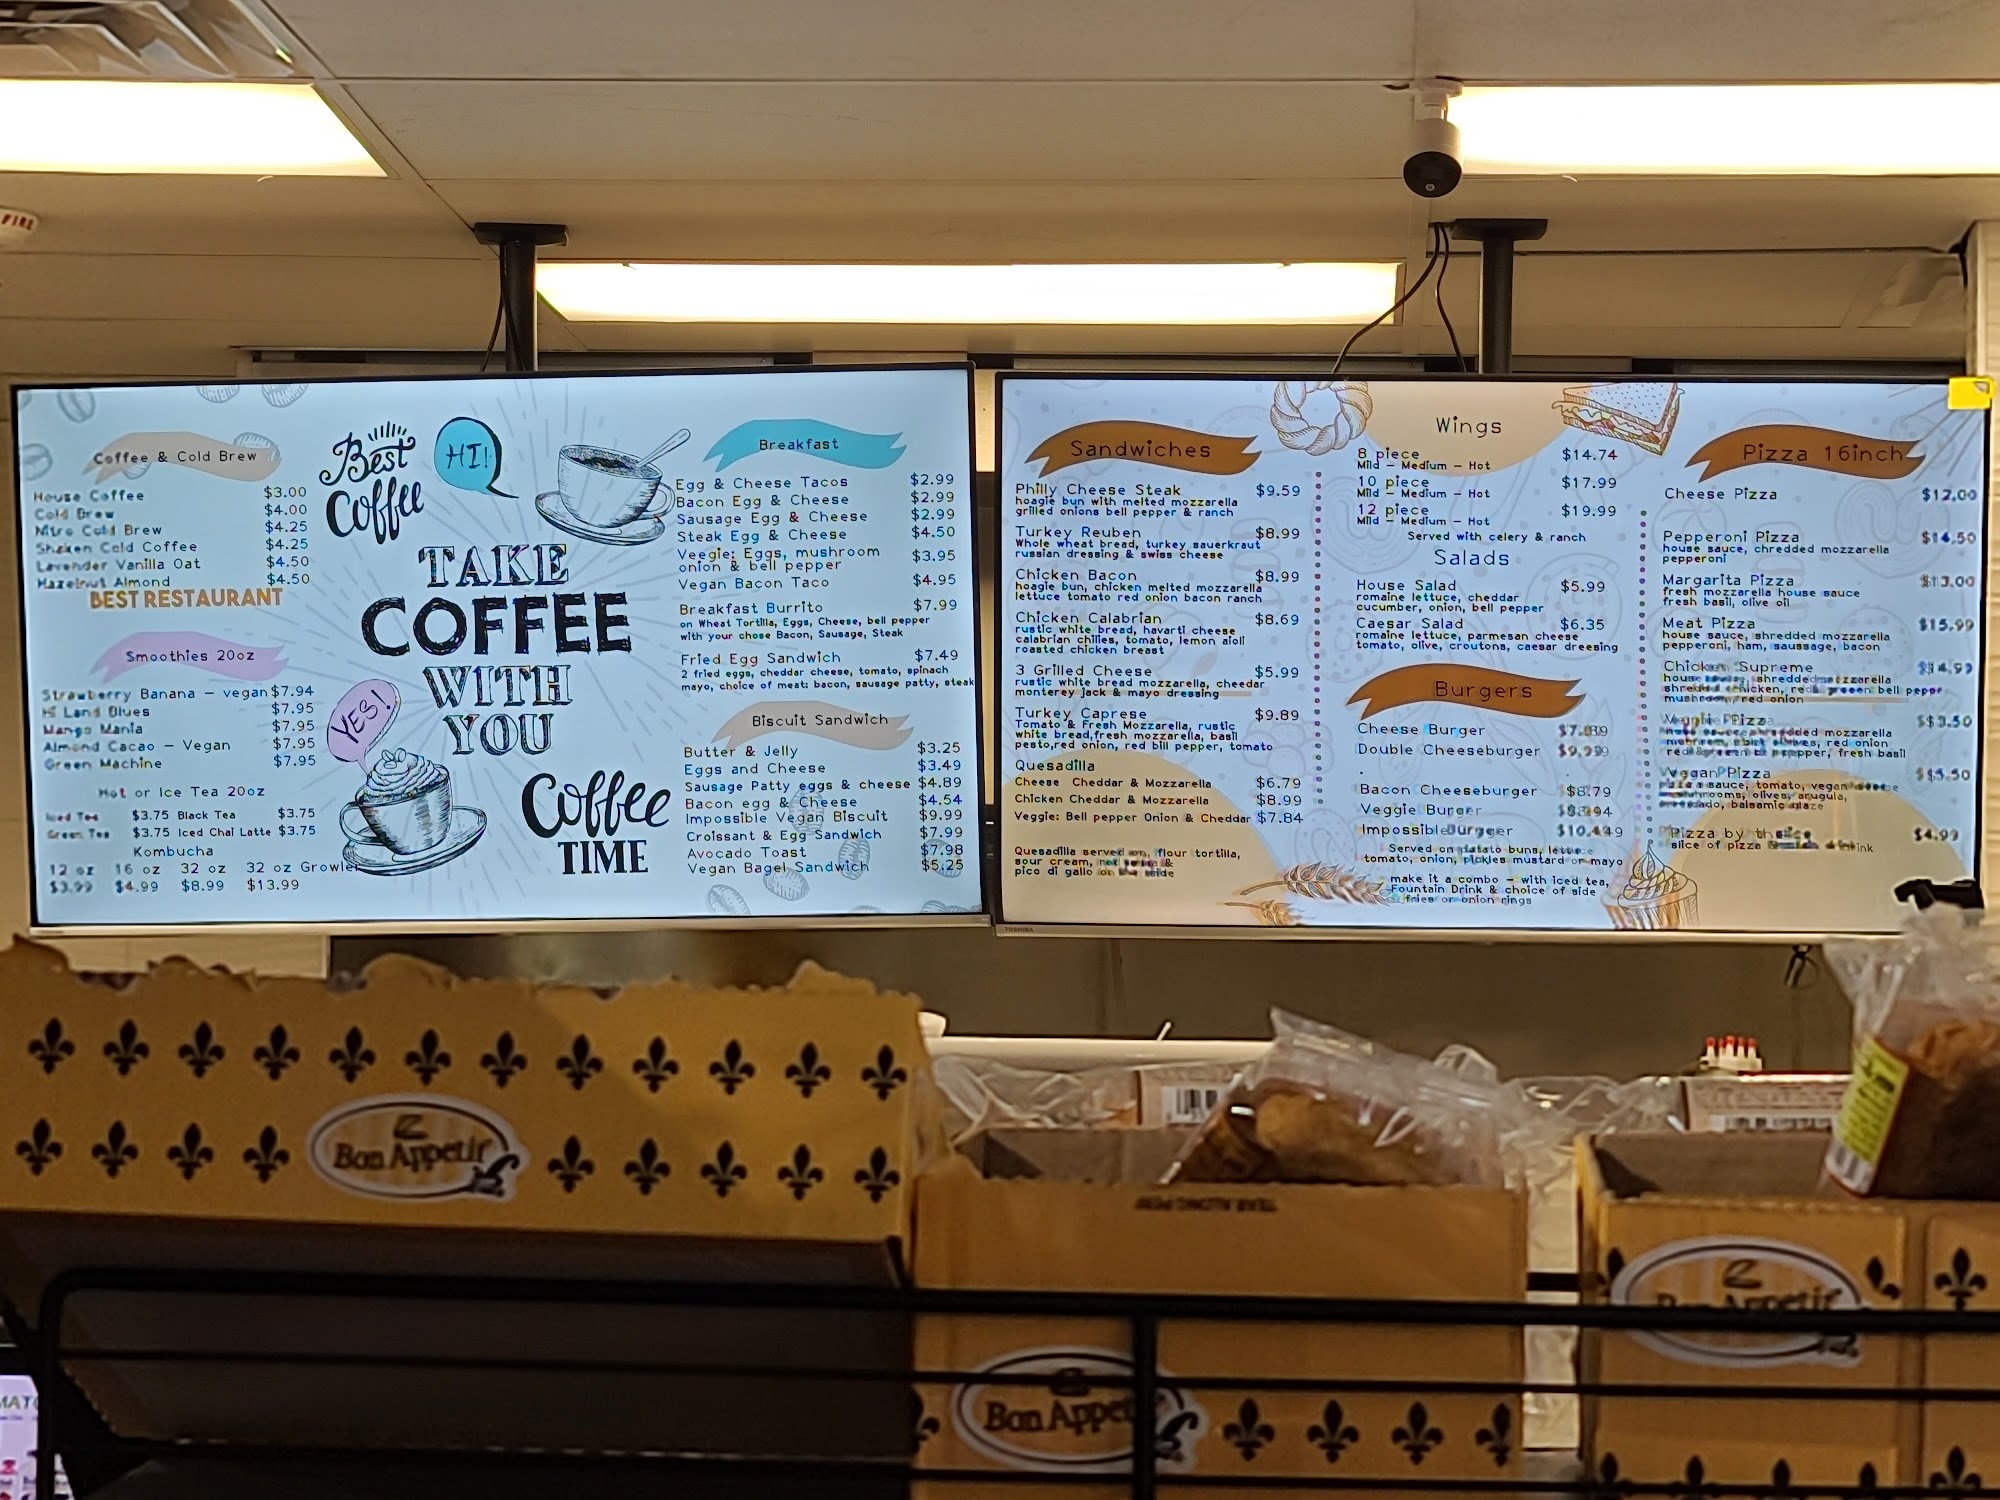 FIRE
Coffee & Cold Brew
House Coffee $3.00
Cold Brew $4.00
Nitro Cold Brew $4.25
Shaken Cold Coffee $4.25
Lavender Vanilla Oat $4.50
Hazelnut Almond $4.50
BEST RESTAURANT
Smoothies 20oz
Strawberry Banana - vegan $7.94
Hi Land Blues $7.95
Mango Mania $7.95
Almond Cacao - Vegan $7.95
Green Machine $7.95
Hot or Ice Tea 20oz
Iced Tea $3.75 Black Tea $3.75
Green Tea $3.75 Iced Chai Latte $3.75
Kombucha
12 oz 16 oz 32 oz 32 oz Growler
$3.99 $4.99 $8.99 $13.99
Best
Coffee
HI!
TAKE
COFFEE
WITH
YOU
YES!
Coffee
TIME
Breakfast
Egg & Cheese Tacos $2.99
Bacon Egg & Cheese $2.99
Sausage Egg & Cheese $2.99
Steak Egg & Cheese $4.50
Veegie: Eggs, mushroom $3.95
onion & bell pepper
Vegan Bacon Taco $4.95
Breakfast Burrito $7.99
on Wheat Tortilla, Eggs, Cheese, bell pepper
with your chose Bacon, Sausage, Steak
Fried Egg Sandwich $7.49
2 fried eggs, cheddar cheese, tomato, spinach
mayo, choice of meat: bacon, sausage patty, steak
Biscuit Sandwich
Butter & Jelly $3.25
Eggs and Cheese $3.49
Sausage Patty eggs & cheese $4.89
Bacon egg & Cheese $4.54
Impossible Vegan Biscuit $9.99
Croissant & Egg Sandwich $7.99
Avocado Toast $7.98
Vegan Bagel Sandwich $5.25
Sandwiches
Philly Cheese Steak $9.59
hoagie bun with melted mozzarella
grilled onions bell pepper & ranch
Turkey Reuben $8.99
Whole wheat bread, turkey sauerkraut
russian dressing & swiss cheese
Chicken Bacon $8.99
hoagie bun, chicken melted mozzarella
lettuce tomato red onion bacon ranch
Chicken Calabrian $8.69
rustic white bread, havarti cheese
calabrian chilies, tomato, lemon aioli
roasted chicken breast
3 Grilled Cheese $5.99
rustic white bread mozzarella, cheedar
monterey jack & mayo dressing
Turkey Caprese $9.89
Tomato & Fresh Mozzarella, rustic
white bread,fresh mozzarella, basil
pesto,red onion, red bill pepper, tomato
Quesadilla
Cheese Cheddar & Mozzarella $6.79
Chicken Cheddar & Mozzarella $8.99
Veggie: Bell pepper Onion & Cheddar $7.84
Quesadilla served on, flour tortilla,
sour cream, &
pico di gallo on the side
Wings
8 piece $14.74
Mild - Medium - Hot
10 piece $17.99
Mild - Medium - Hot
12 piece $19.99
Mild - Medium - Hot
Served with celery & ranch
Salads
House Salad $5.99
romaine lettuce, cheddar
cucumber, onion, bell pepper
Caesar Salad $6.35
romaine lettuce, parmesan cheese
tomato, olive, croutons, caesar dreesing
Burgers
Cheese Burger
Double Cheeseburger
Bacon Cheeseburger $8.79
Veggie Burger
Impossible Burger
Served on potato buns, lettuce
tomato, onion, pickles mustard or mayo
make it a combo - with iced tea,
Fountain Drink & choice of side
fries or onion rings
Pizza 16inch
Cheese Pizza $12.00
Pepperoni Pizza $14.50
house sauce, chredded mozzarella
pepperoni
Margarita Pizza $13.00
fresh mozzarella house sauce
fresh basil, olive oil
Meat Pizza $15.99
house sauce, shredded mozzarella
pepperoni, ham, saussage, bacon
Chicken Supreme $14.99
house shredded mozzarella
shreded chicken, red green bell pepper
mushroom, red onion
Veggie Pizza
shredded mozzarella
olives, red onion
red & pepper, fresh basil
Vegan Pizza
sauce, tomato, vegan
mushrooms, olives, arugula,
avocado, balsamic glaze
Pizza by the slice $4.99
slice of pizza drink
TOSHIBA
Bon Appetit
TEAR ALONG PERF
Bon Appetit
Bon Appetit